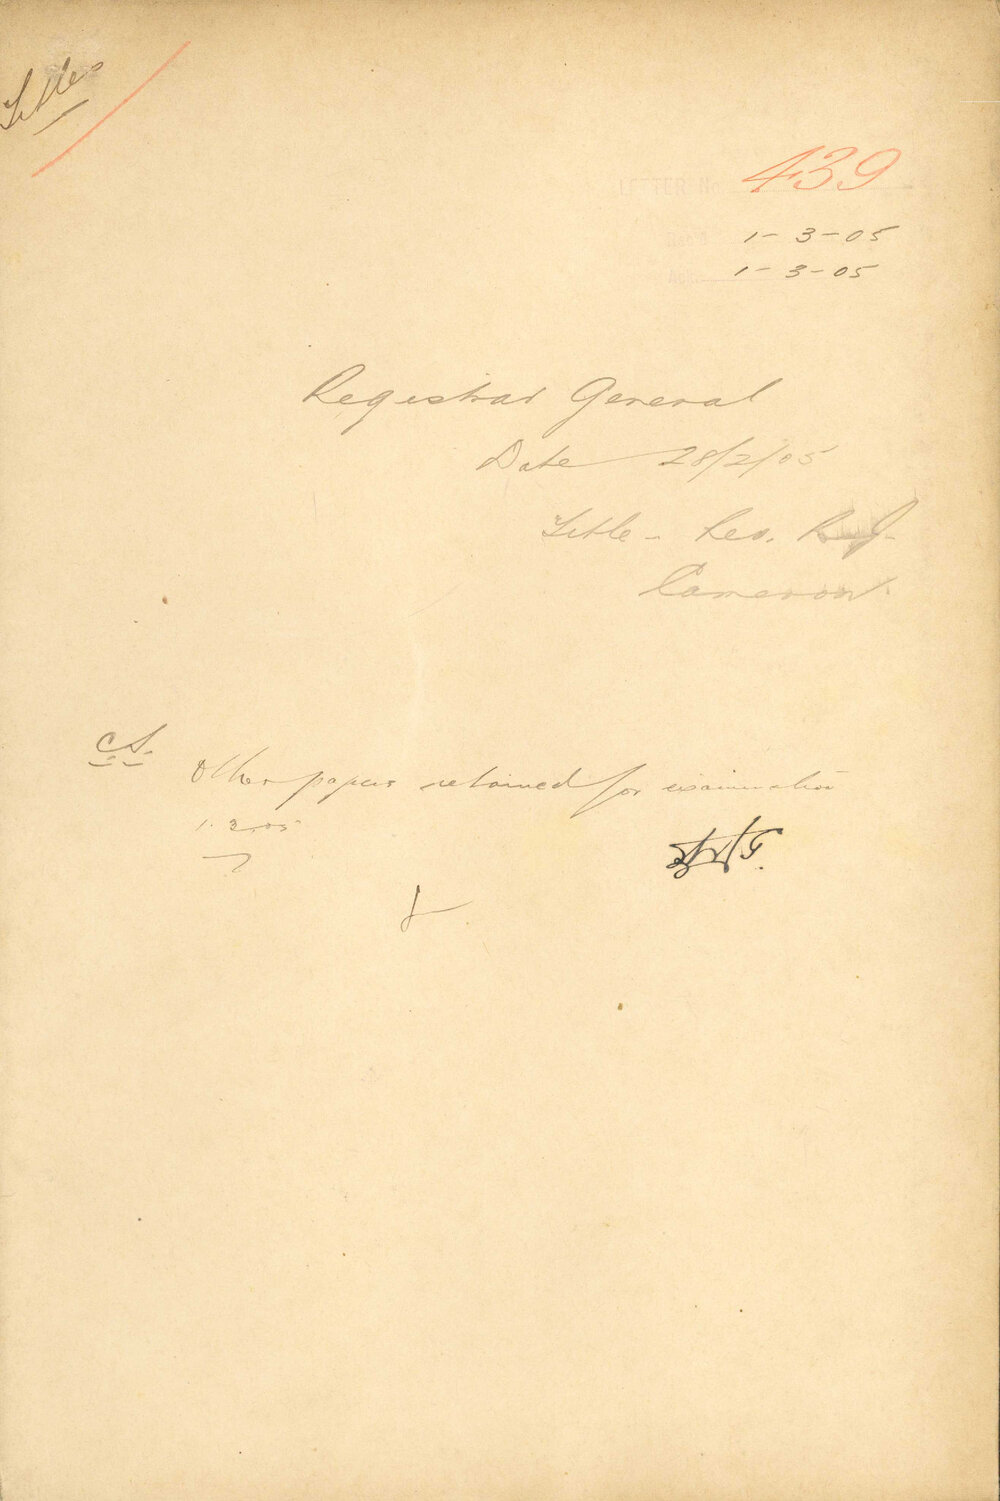 Titles
LETTER No. 439
Rec'd 1-3-05
Ack. 1-3-05
Registrar General
Date 28/2/05
Title - Rev. R. J.
Cameron.
C.S.
Other papers retained for examination
1.3.05